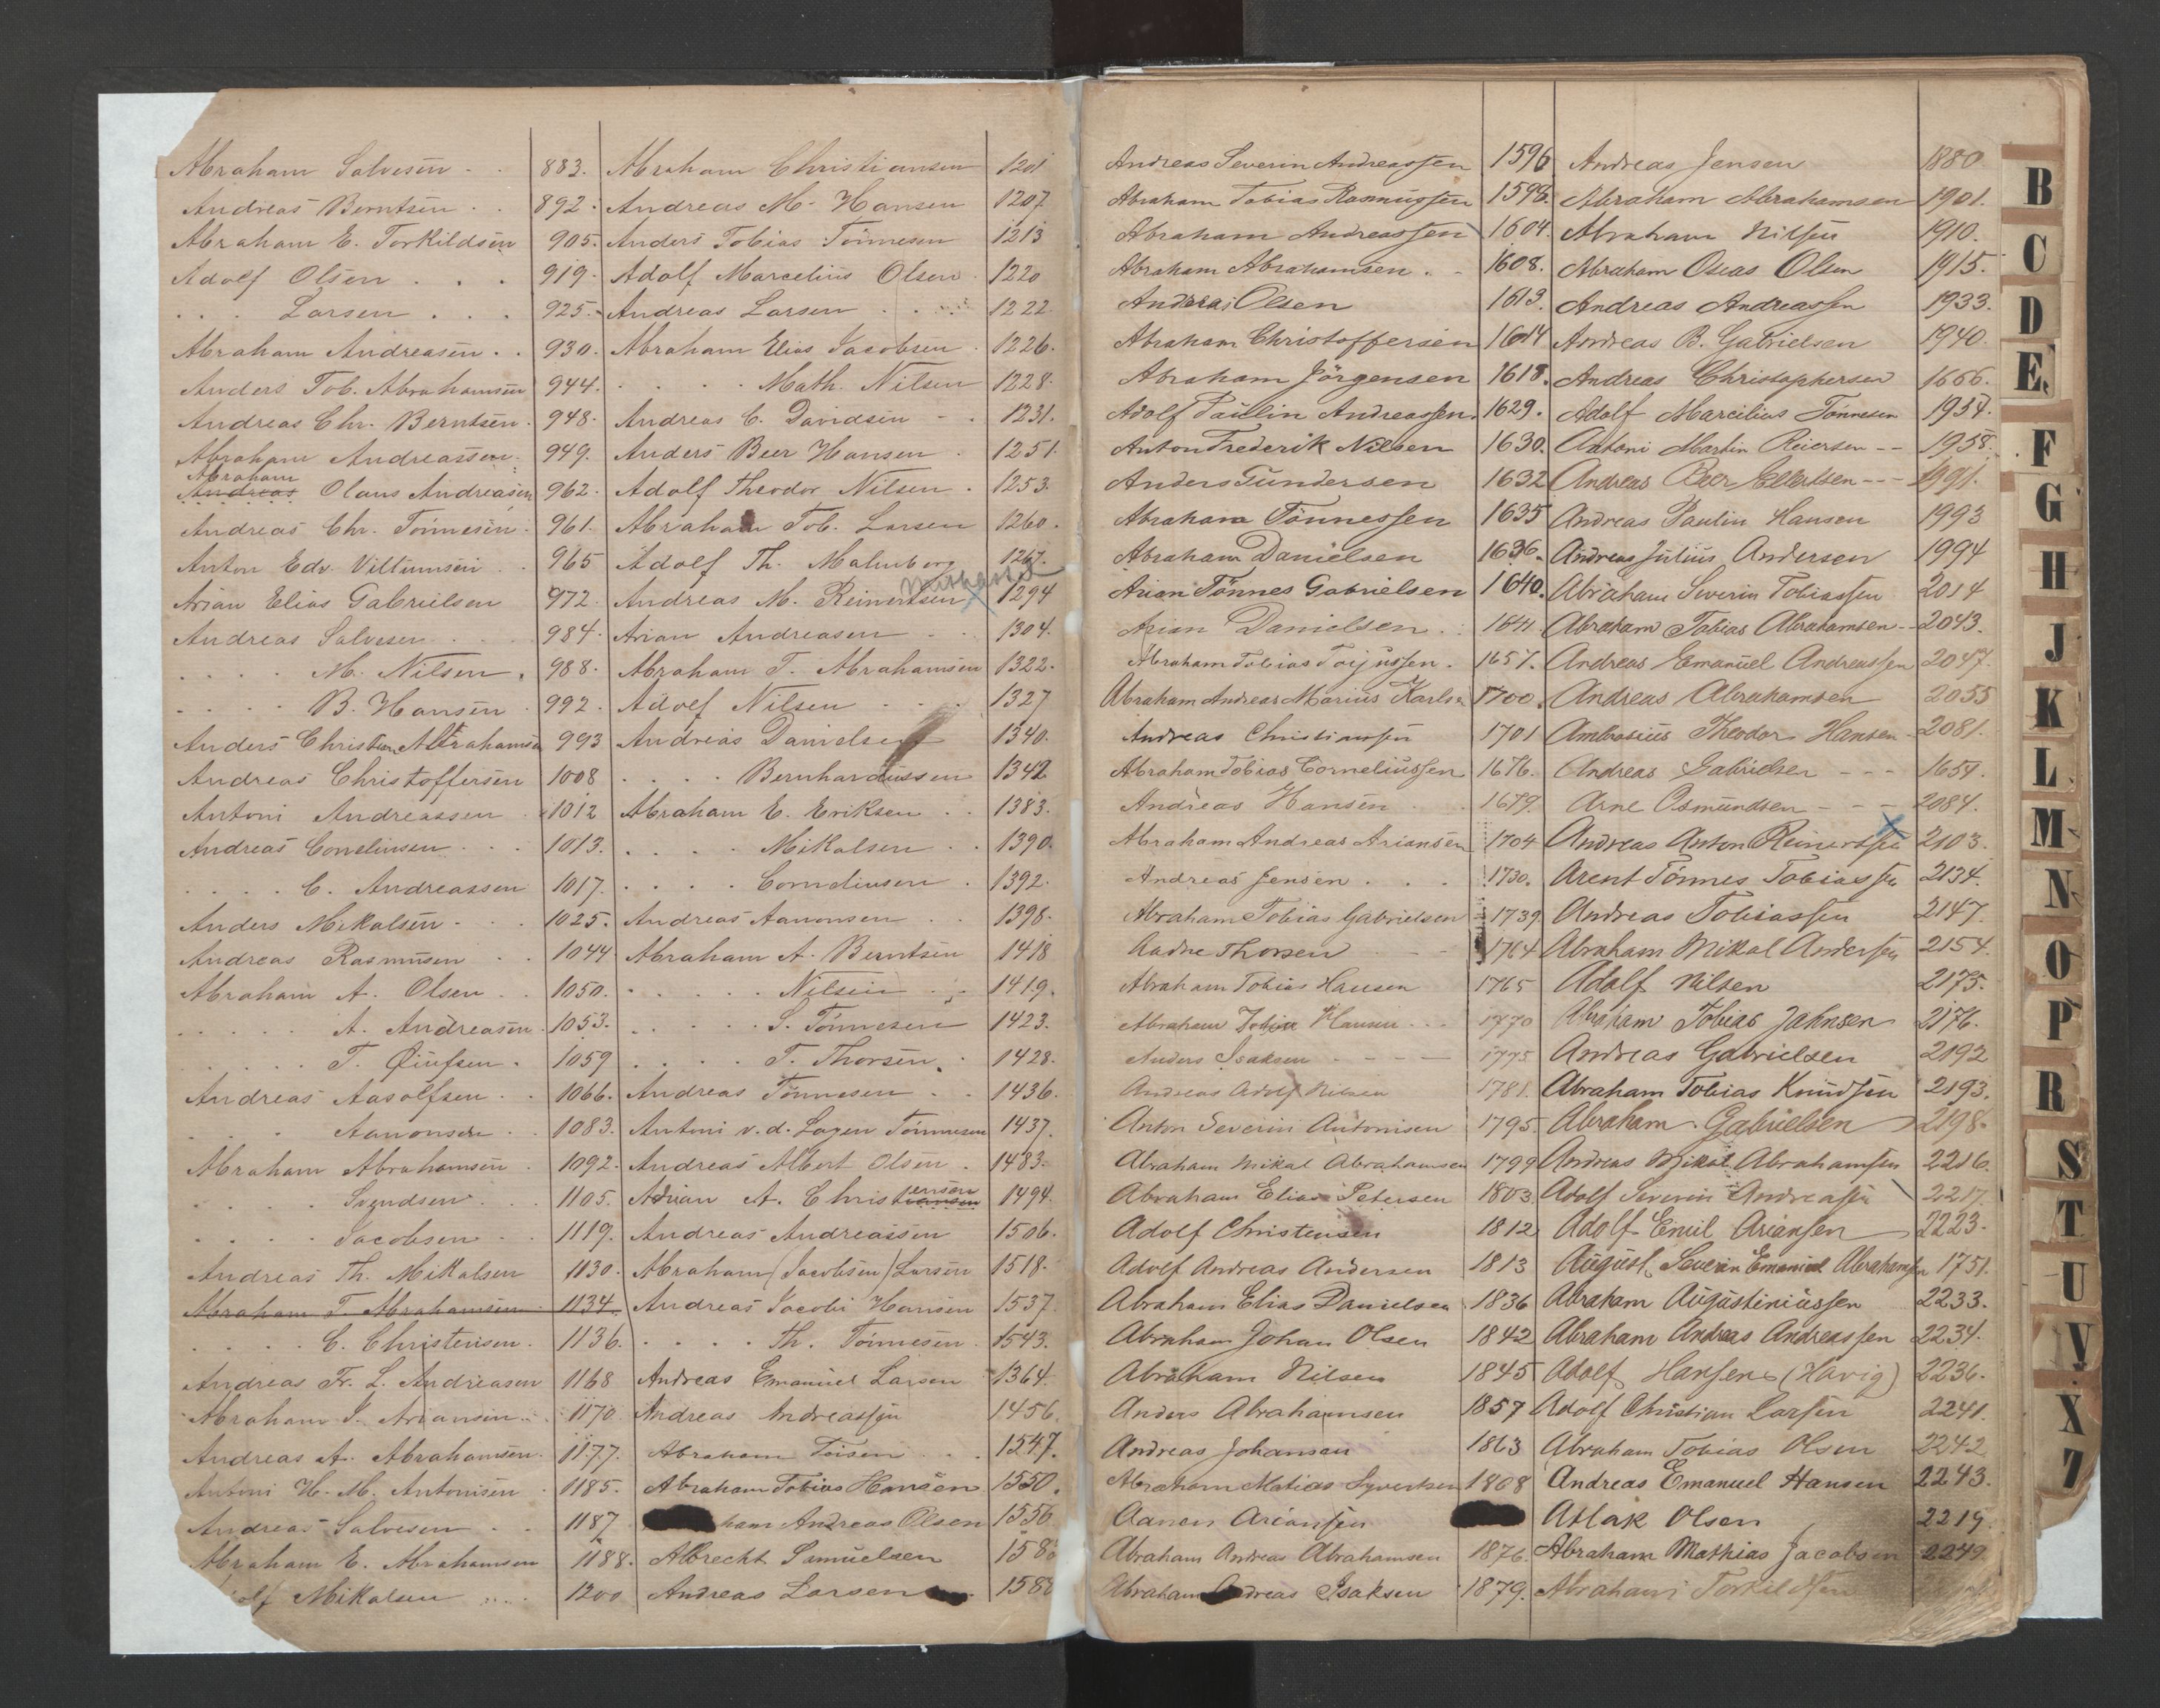 Abraham Salvesen - - 883.
Andreas Berntsen - - 892.
Abraham E. Torkildsen 905.
Adolf Olsen . . . 919.
. . . Larsen . . . 925.
Abraham Andreasen . . 930.
Anders Tob. Abrahamsen 944.
Andreas Chr. Berntsen . 948.
Abraham Andreassen . 949.
Abraham
Andreas Olaus Andreasen 962.
Andreas Chr. Tönnesen . 961.
Anton Edv. Villumsen . . 965
Arian Elias Gabrielsen 972.
Andreas Salvesen . . . 984.
. . . . M. Nilsen . 988.
. . . . B. Hansen . 992.
Anders Christian Abrahamsen 993
Andreas Christoffersen 1008
Antoni Andreassen . 1012
Andreas Corneliusen . . . 1013.
. . . . C. Andreassen 1017.
Anders Mikalsen . . . 1025.
Andreas Rasmusen . . 1044
Abraham A. Olsen . . 1050.
. . . . A. Andreasen . 1053.
. . . . T. . 1059
Andreas Aasolfsen . . 1066.
. . . Aanonsen . . 1083.
Abraham Abrahamsen . 1092.
. . . . Svendsen . . . 1105.
. . . . Jacobsen . . 1119.
Andreas Th. Mikalsen 1130.
Abraham T. Abrahamsen 1134.
. . . . C. Christensen . 1136.
Andreas Fr. L. Andreasen 1168
Abraham J. Ariansen . . 1170
Andreas A. Abrahamsen . 1177.
Antoni H. M. Antonisen . 1185.
Andreas Salvesen . . 1187
Abraham E. Abrahamsen 1188.
olf Mikalsen . . . 1200
Abraham Christiansen 1201
Andreas M. Hansen 1207
Anders Tobias Tönnesen 1213
Adolf Marcelius Olsen . 1220
Andreas Larsen . . . 1222
Abraham Elias Jacobsen . 1226.
. . . . Math. Nilsen 1228.
Andreas C. Davidsen - . 1231.
Anders Beer Hansen . 1251.
Adolf Theodor Nilsen . 1253.
Abraham Tob. Larsen 1260.
Adolf Th. Malmberg 1267.
Andreas M. Reinertsen 1294
Arian Andreasen - . . 1304.
Abraham T. Abrahamsen 1322.
Adolf Nilsen . . . 1327
Andreas Danielsen 1340.
. . . . Bernhardussen 1342
Abraham E. Eriksen . . 1383.
. . . . Mikalsen . . 1390.
. . . . Corneliusen . 1392.
Andreas Aanonsen . . 1398.
Abraham A. Berntsen 1418
. . . . . Nilsen . . 1419.
. . . . . S. Tönnesen 1423.
. . . . T. Thorsen . . 1428.
Andreas Tönnesen . . 1436.
Antoni v. d. Lagen Tönnesen 1437.
Andreas Albert Olsen . 1483.
Adrian A. Christensen 1494.
Andreas Andreassen 1506.
Abraham (Jacobsen) Larsen 1518.
Andreas Jacobi Hansen 1537
. . . . Th. Tönnesen . 1543.
Andreas Emanuel Larsen . 1364.
Andreas Andreassen 1456.
Abraham . . 1547.
Abraham Tobias Hansen 1550.
ham Andreas Olsen 1556
Albrecht Samuelsen 158
Andreas Larsen 158
Andreas Severin Andreassen 1596
Abraham Tobias Rasmussen 1598.
Abraham Andreassen 1604.
Abraham Abrahamsen . - 1608.
Andreas Olsen 1613.
Abraham Christoffersen 1614
Abraham Jörgensen 1618.
Adolf Paulin Andreassen. 1629.
Anton Frederik Nilsen 1630.
Anders Gundersen 1632
Abraham Tönnessen 1635
Abraham Danielsen 1636.
Arian Tönnes Gabrielsen 1640.
Arian Danielsen . . 1641.
Abraham Tobias Torjussen . 1657.
Abraham Andreas Marius Karlsn 1700.
Andreas Christiansen 1701
Abraham Tobias Corneliussen 1676.
Andreas Hansen . . 1679.
Abraham Andreas Ariansen 1704
Andreas Jensen . . . 1730.
Abraham Tobias Gabrielsen 1739
Aadne Thorsen - - 1764
Abraham Tobias Hansen 1765
Abraham Tobias Hansen . . . 1770
Anders Isaksen - - - - 1775
Andreas Adolf Nilsen 1781.
Anton Severin Antonisen 1795.
Abraham Mikal Abrahamsen 1799
Abraham Elias Petersen 1803
Adolf Christensen 1812
Adolf Andreas Andersen 1813
Abraham Elias Danielsen 1836
Abraham Johan Olsen 1842
Abraham Nilsen 1845
Anders Abrahamsen 1857
Andreas Johansen 1863
Abraham Matias Syvertsen 1868
Aanen Ariansen
Abraham Andreas Abrahamsen 1876.
Abraham Andreas Isaksen 1879.
Andreas Jensen 1880
Abraham Abrahamsen 1901.
Abraham Nilsen 1910.
Abraham Oseas Olsen 1915.
Andreas Andreassen 1933.
Andreas B. Gabrielsen 1940.
Andreas Christophersen 1666.
Adolf Marcilius Tönnesen 1954.
Antoni Martin Reiersen - - 1958.
Andreas Beer Ellertsen - - - 1991.
Andreas Paulin Hansen 1993
Andreas Julius Andersen 1994
Abraham Severin Tobiassen 2014
Abraham Tobias Abrahamsen - - 2043.
Andreas Emanuel Andreassen 2047.
Andreas Abrahamsen 2055
Ambrosius Theodor Hansen 2081.
Andreas Gabrielsen - - - 1654.
Arne Osmundsen - - - 2084.
Andreas Anton Reinertsen 2103.
Arent Tönnes Tobiassen 2134.
Andreas Tobiassen 2147.
Abraham Mikal Andersen 2154.
Adolf Nilsen 2175.
Abraham Tobias Jahnsen 2176.
Andreas Gabrielsen 2192
Abraham Tobias Knudsen 2193.
Abraham Gabrielsen 2198.
Andreas Mikal Abrahamsen 2216.
Adolf Severin Andreassen 2217.
Adolf Emil Ariansen 2223.
August Severin Emanuel Abrahamsen 1751.
Abraham Augustiniussen 2233.
Abraham Andreas Andreassen 2234.
Adolf Hansen (Havig) 2236.
Adolf Christian Larsen 2241.
Abraham Tobias Olsen 2242
Andreas Emanuel Hansen 2243.
Atlak Olsen 2219.
Abraham Mathias Jacobsen 2249.
Abraham Torkildsen
B
C
D
E
F
G
H
J
K
L
M
N
O
P
R
S
T
U
V
X